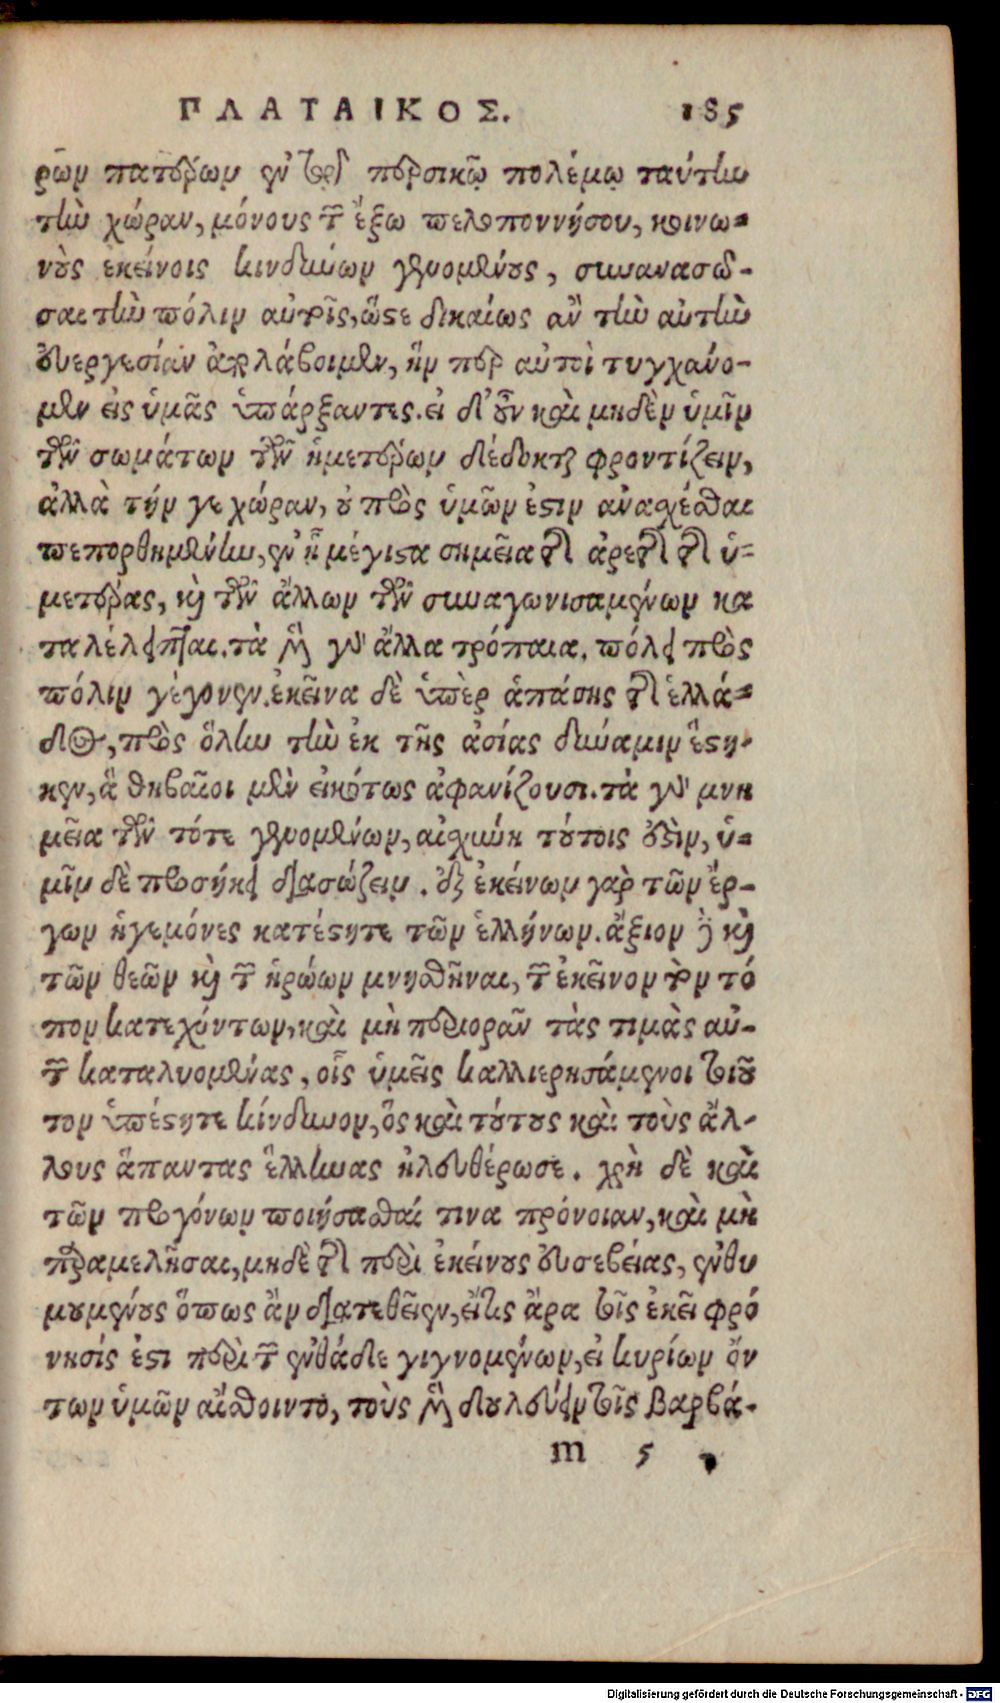 ΠΛΑΤΑΙΚΟΣ. 185
ρων πατέρων ἐν τῷ περσικῷ πολέμῳ ταύτην
τὴν χώραν, μόνους τῶν ἔξω πελοποννήσου, κοινω-
νοὺς ἐκείνοις κινδύνων γενομένους, συνανασῶ-
σαι τὴν πόλιν αὐτοῖς, ὥστε δικαίως ἂν τὴν αὐτὴν
εὐεργεσίαν ἀπολάβοιμεν, ἥν περ αὐτοὶ τυγχάνο-
μεν εἰς ὑμᾶς ὑπάρξαντες. εἰ δ' οὖν καὶ μηδὲν ὑμῖν
τῶν σωμάτων τῶν ἡμετέρων δέδοκται φροντίζειν,
ἀλλὰ τήν γε χώραν, οὐ πρὸς ὑμῶν ἐστιν ἀνασχέσθαι
πεπορθημένην, ἐν ᾗ μέγιστα σημεῖα τῆς ἀρετῆς τῆς ὑ-
μετέρας, καὶ τῶν ἄλλων τῶν συναγωνισαμένων κα
ταλέλειπται. τὰ μὲν γὰρ ἄλλα τρόπαια, πόλει πρὸς
πόλιν γέγονεν. ἐκεῖνα δὲ ὑπὲρ ἁπάσης τῆς ἑλλά-
δος, πρὸς ὅλην τὴν ἐκ τῆς ἀσίας δύναμιν ἕστη-
κεν, ἃ θηβαῖοι μὲν εἰκότως ἀφανίζουσι. τὰ γὰρ μνη
μεῖα τῶν τότε γενομένων, αἰσχύνη τούτοις ἐστὶν, ὑ-
μῖν δὲ προσήκει διασώζειν. ἐξ ἐκείνων γὰρ τῶν ἔρ-
γων ἡγεμόνες κατέστητε τῶν ἑλλήνων. ἄξιον δὲ καὶ
τῶν θεῶν καὶ τῶν ἡρώων μνησθῆναι, τῶν ἐκεῖνον τὸν τό
πον κατεχόντων, καὶ μὴ περιορᾶν τὰς τιμὰς αὐ-
τῶν καταλυομένας, οἷς ὑμεῖς καλλιερησάμενοι τοιοῦ
τον ὑπέστητε κίνδυνον, ὃς καὶ τούτους καὶ τοὺς ἄλ-
λους ἅπαντας ἕλληνας ἠλευθέρωσε. χρὴ δὲ καὶ
τῶν προγόνων ποιήσασθαί τινα πρόνοιαν, καὶ μὴ
παραμελῆσαι, μηδὲ τῆς περὶ ἐκείνους εὐσεβείας, ἐνθυ
μουμένους ὅπως ἂν διατεθεῖεν, εἴ τις ἄρα τοῖς ἐκεῖ φρό
νησίς ἐστι περὶ τῶν ἐνθάδε γιγνομένων, εἰ κυρίων ὄν
των ὑμῶν αἴσθοιντο, τοὺς μὲν δουλεύειν τοῖς βαρβά-
m 5
Digitalisierung gefördert durch die Deutsche Forschungsgemeinschaft - DFG